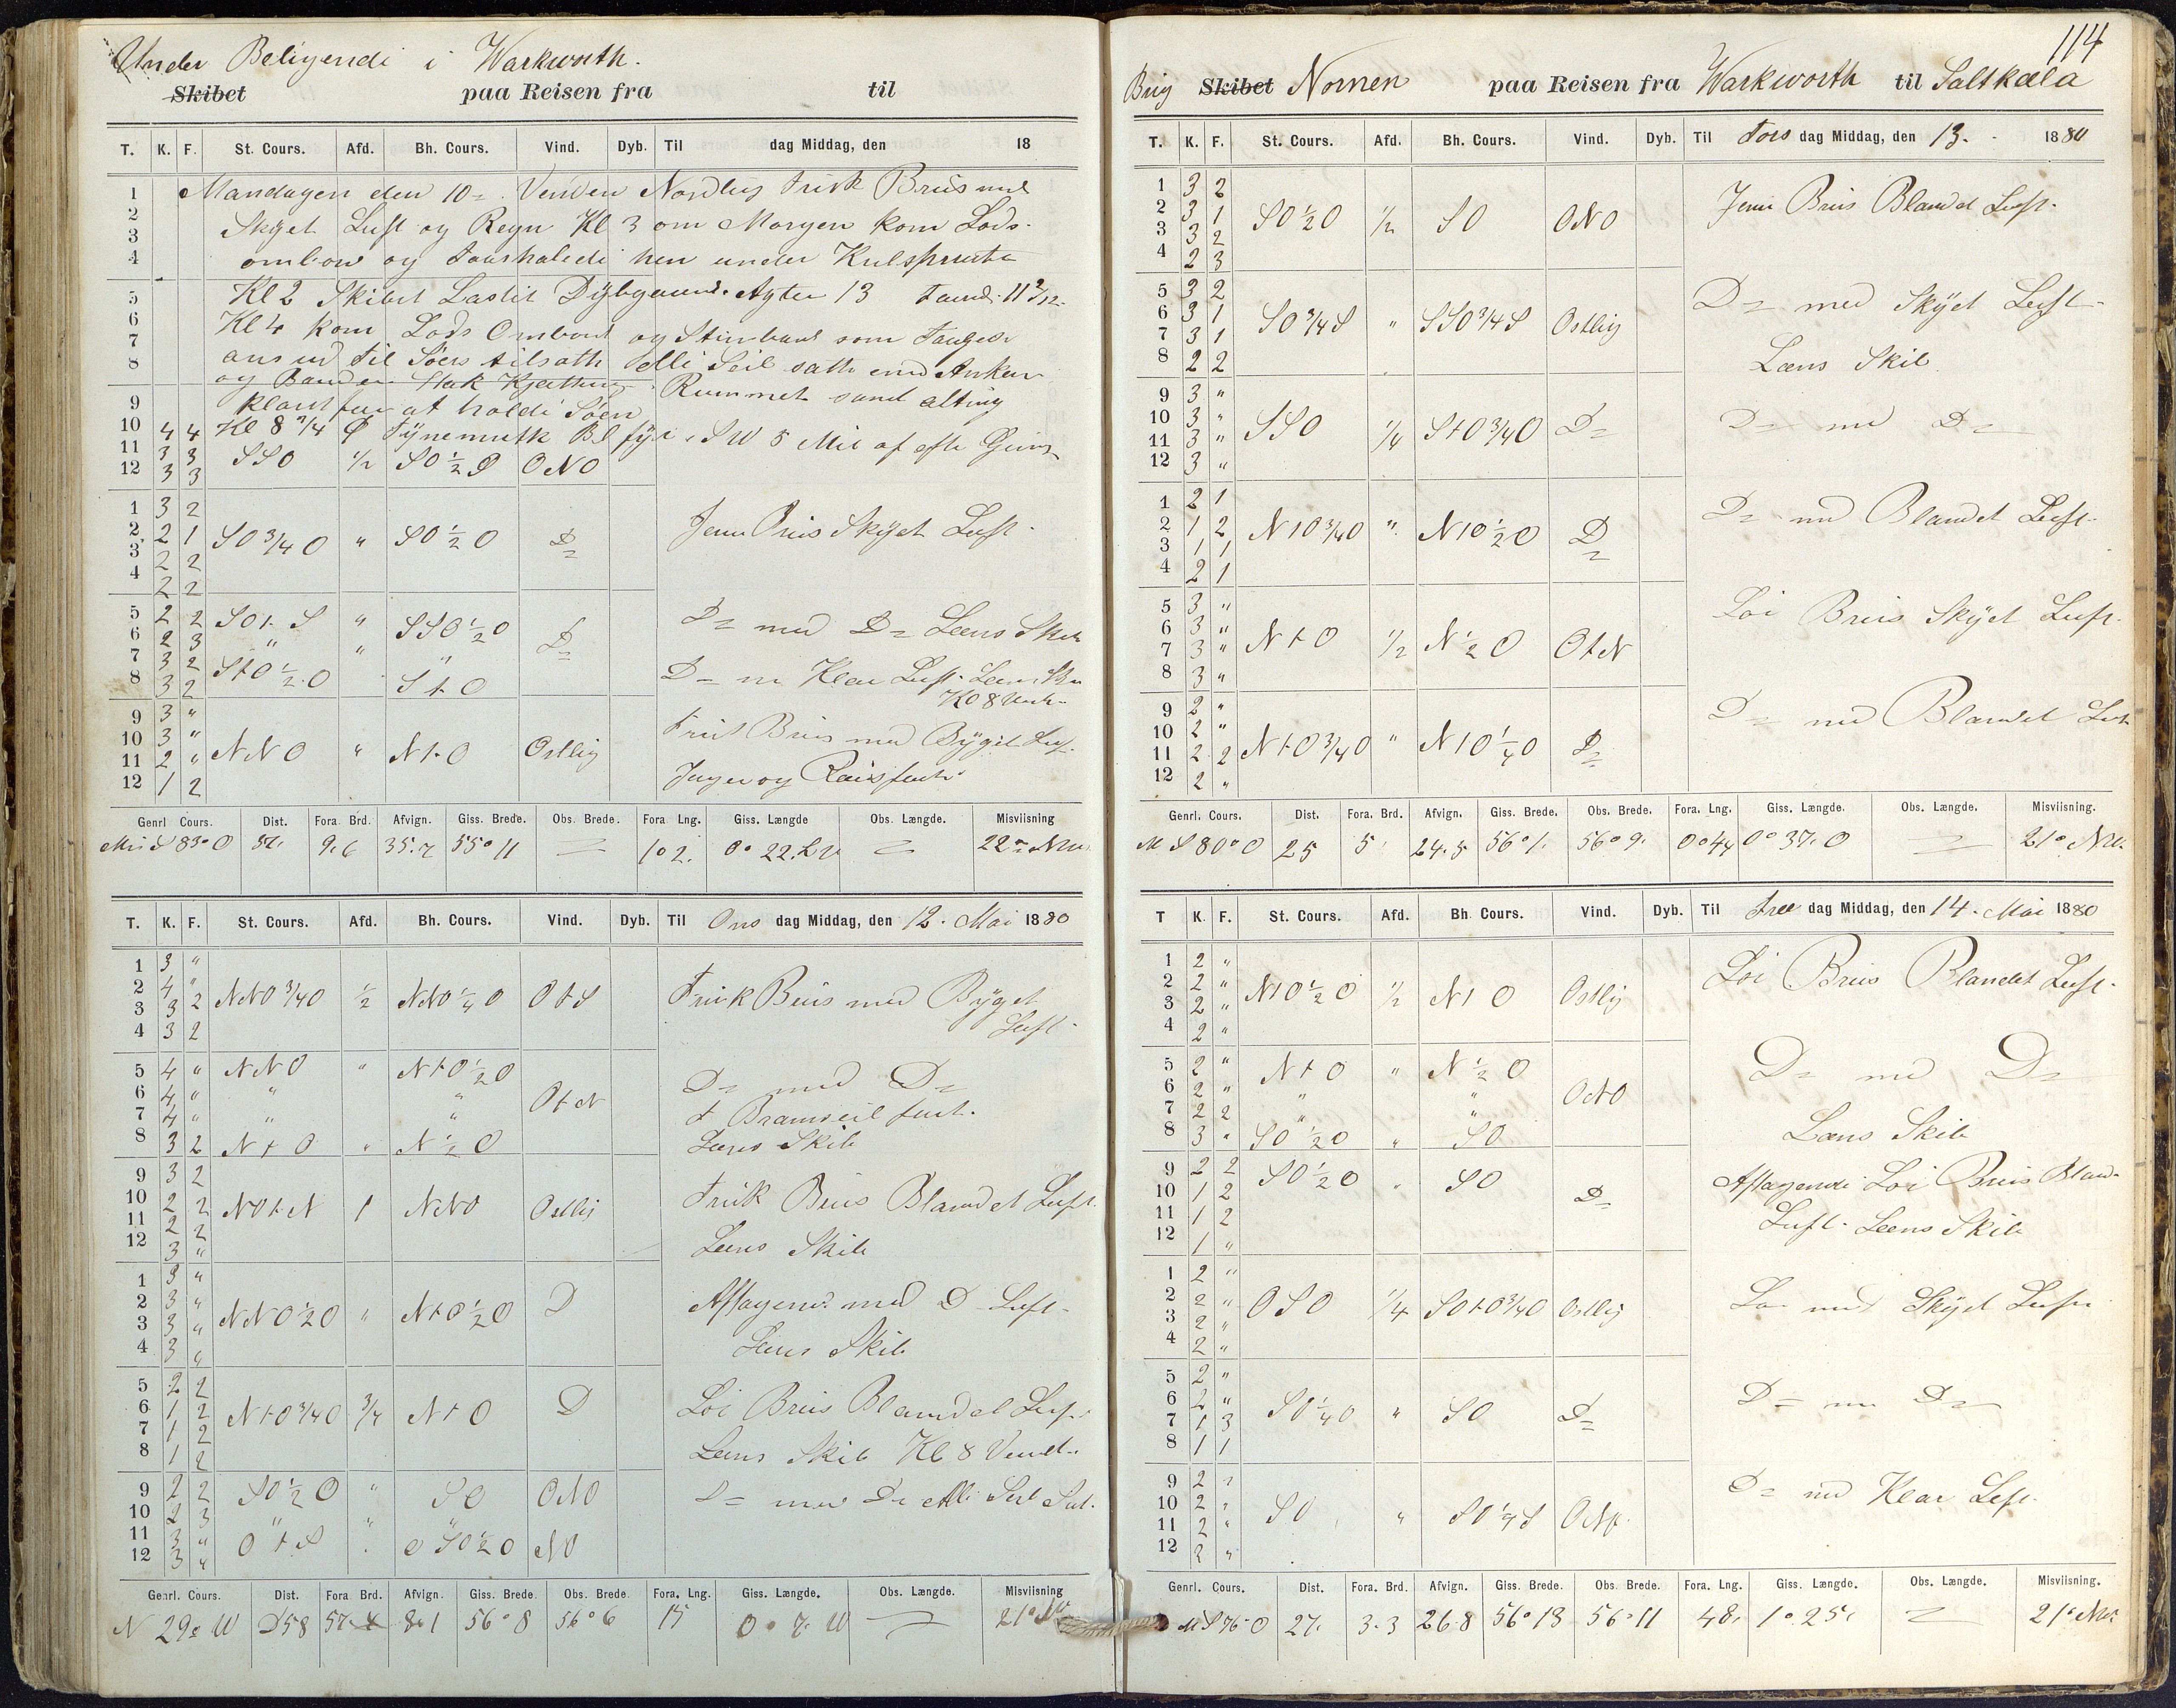 Under Beliggende i Warkworth.
Skibet paa Reisen fra til
T. K. F. St. Cours. Afd. Bh. Cours. Vind. Dyb. Til dag Middag, den 18
1 Mandagen den 10= Vinden Nordlig Frisk Briis med
2 Skyet Luft og Regn Kl 3 om Morgen kom Lods
3 ombord og
4 hen under
5 Kl 2 Skibet Dybgaaende Agter 13
6 Kl 4 kom Lods Ombord og Stimbaad som
7 ans ud til Söes tilsatte alle Seil satte
8 og
9 klart for at holde Söen Rummet samt alting
10 4 4 Kl 8 Tynemuth fyr SW 5 Mil af
11 3 3 SSO 1/2 SO 1/2 O ONO
12 3 3
1 3 2
2 2 1 SO 3/4 O " SO 1/2 O D= Jevn Briis Skyet Luft
3 2 2
4 2 2
5 2 2 SOt S " SSO 1/2 O D= D= med D= Læns Skib
6 2 3 " "
7 3 2 StO 1/2 O StO D= m Klar Luft
8 3 2
9 3 " Frisk Briis med Byget Luft
10 3 " NNO " NtO Ostlig
11 2 " Jager og
12 1 2
Genrl Cours. Dist. Fora Brd. Afvign. Giss. Brede. Obs. Brede. Fora Lng. Giss. Længde Obs. Længde. Misviisning
S 83° O 9.6 35.7 55° 11 1° 2. 0° 22. 22°
T. K. F. St. Cours. Afd. Bh. Cours. Vind. Dyb. Til Ons dag Middag, den 12. Mai 1880
1 3 "
2 4 " NNO 3/4 O 1/2 NNO 1/4 O OtS Frisk Briis med Byget
3 3 2 Luft
4 3 2
5 4 " NNO " NtO 1/2 O
6 4 " " " OtN D= med D=
7 4 " " " Bramseil fast.
8 3 2 NtO " N 1/2 O Læns Skib
9 3 2
10 2 2 NOtN 1 NNO Ostlig Frisk Briis Blandet Luft
11 2 2
12 3 " Læns Skib
1 3 "
2 3 " NNO 1/2 O " NtO 1/2 O D Aftagend med D Luft
3 3 "
4 3 " Læns Skib
5 2 2
6 1 2 NtO 3/4 O 3/4 NtO D Löi Briis Blandet Luft
7 1 2
8 1 2 Læns Skib Kl 8 Vendt
9 2 2 SO 1/2 O " SO ONO D= med D= Alle Seil Sat.
10 2 3
11 3 " OtS OSO 1/2 O NO
12 3 "
Genrl. Cours. Dist. Fora Brd. Afvign. Giss. Brede. Obs. Brede. Fora. Lng. Giss. Længde. Obs. Længde. Misviisning
N 29° W D58 8.1 56° 8 56° 6 15 0° 7. W 21°
114
Brig Skibet Nornen paa Reisen fra Warkworth til Saltkalla
T. K. F. St. Cours. Afd. Bh. Cours. Vind. Dyb. Til Tors dag Middag, den 13. 1880
1 3 2
2 3 1 SO 1/2 O 1/2 SO ONO Jevn Briis Blandet Luft
3 3 2
4 2 3
5 3 2 D= med Skyet Luft
6 3 1 SO 3/4 S " SSO 3/4 S Ostlig
7 3 1
8 2 2 Læns Skib
9 3 "
10 3 " SSO 1/4 StO 3/4 O D= D= med D=
11 3 "
12 3 "
1 2 1
2 1 2 NtO 3/4 O " NtO 1/2 O D= D= med Blandet Luft
3 1 1
4 2 1
5 3 " Löi Briis Skyet Luft
6 3 " NtO 1/2 N 1/2 O OtN
7 3 "
8 3 "
9 2 " D= med Blandet Luft
10 2 "
11 2 2 NtO 3/4 O " NtO 1/4 O D=
12 2 "
Genrl. Cours. Dist. Fora. Brd. Afvign. Giss. Brede. Obs. Brede. Fora. Lng. Giss. Længde. Obs. Længde. Misviisning.
M S 80° O 25 5 24.5 56° 1. 56° 9. 0° 44 0° 37. O 21°
T K. F. St. Cours. Afd. Bh. Cours. Vind. Dyb. Til Fre dag Middag, den 14. Mai 1880
1 2 "
2 2 " NtO 1/2 O 1/2 NtO Ostlig Löi Briis Blandet Luft
3 2 "
4 2 "
5 2 " NtO " N 1/2 O D= med D=
6 2 " " " ONO
7 2 2 " "
8 3 " SO 1/2 O " SO Læns Skib
9 2 2 SO 1/2 O SO Aftagende Löi Briis Bland
10 1 2 D=
11 1 2 Luft Læns Skib
12 1 "
1 2 "
2 2 " OSO 1/4 SOtO 3/4 O Ostlig med Skyet Luft
3 2 "
4 2 "
5 2 "
6 2 " SO 1/4 O " SO D= D= med D=
7 1 3
8 1 1
9 2 " D= med Klar Luft
10 2 " SO " SO 1/4 S
11 2 "
12 2 "
Genrl. Cours. Dist. Fora. Brd. Afvign. Giss. Brede. Obs. Brede. Fora. Lng. Giss. Længde. Obs. Længde. Misviisning.
M S 76° O 27. 3.3 26.8 56° 13 56° 11 48. 1° 25. 21°